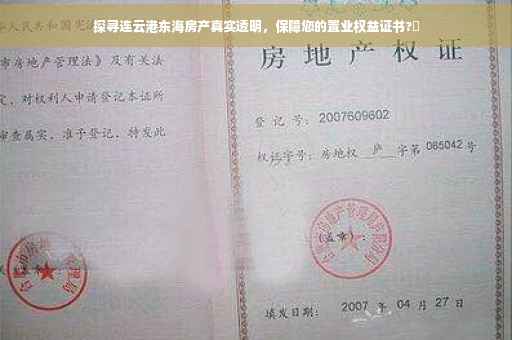 探寻连云港东海房产真实透明，保障您的置业权益证书?
人民共和国宪
市房地产管理法》及有关法
定，对权利人申请登记本证所
审查属实，准予登记，特发此
房地产权证
登记号：2007609602
权证字号：房地权 庐 字第 065042 号
(盖章)：
填发日期：2007 年 04 月 27 日